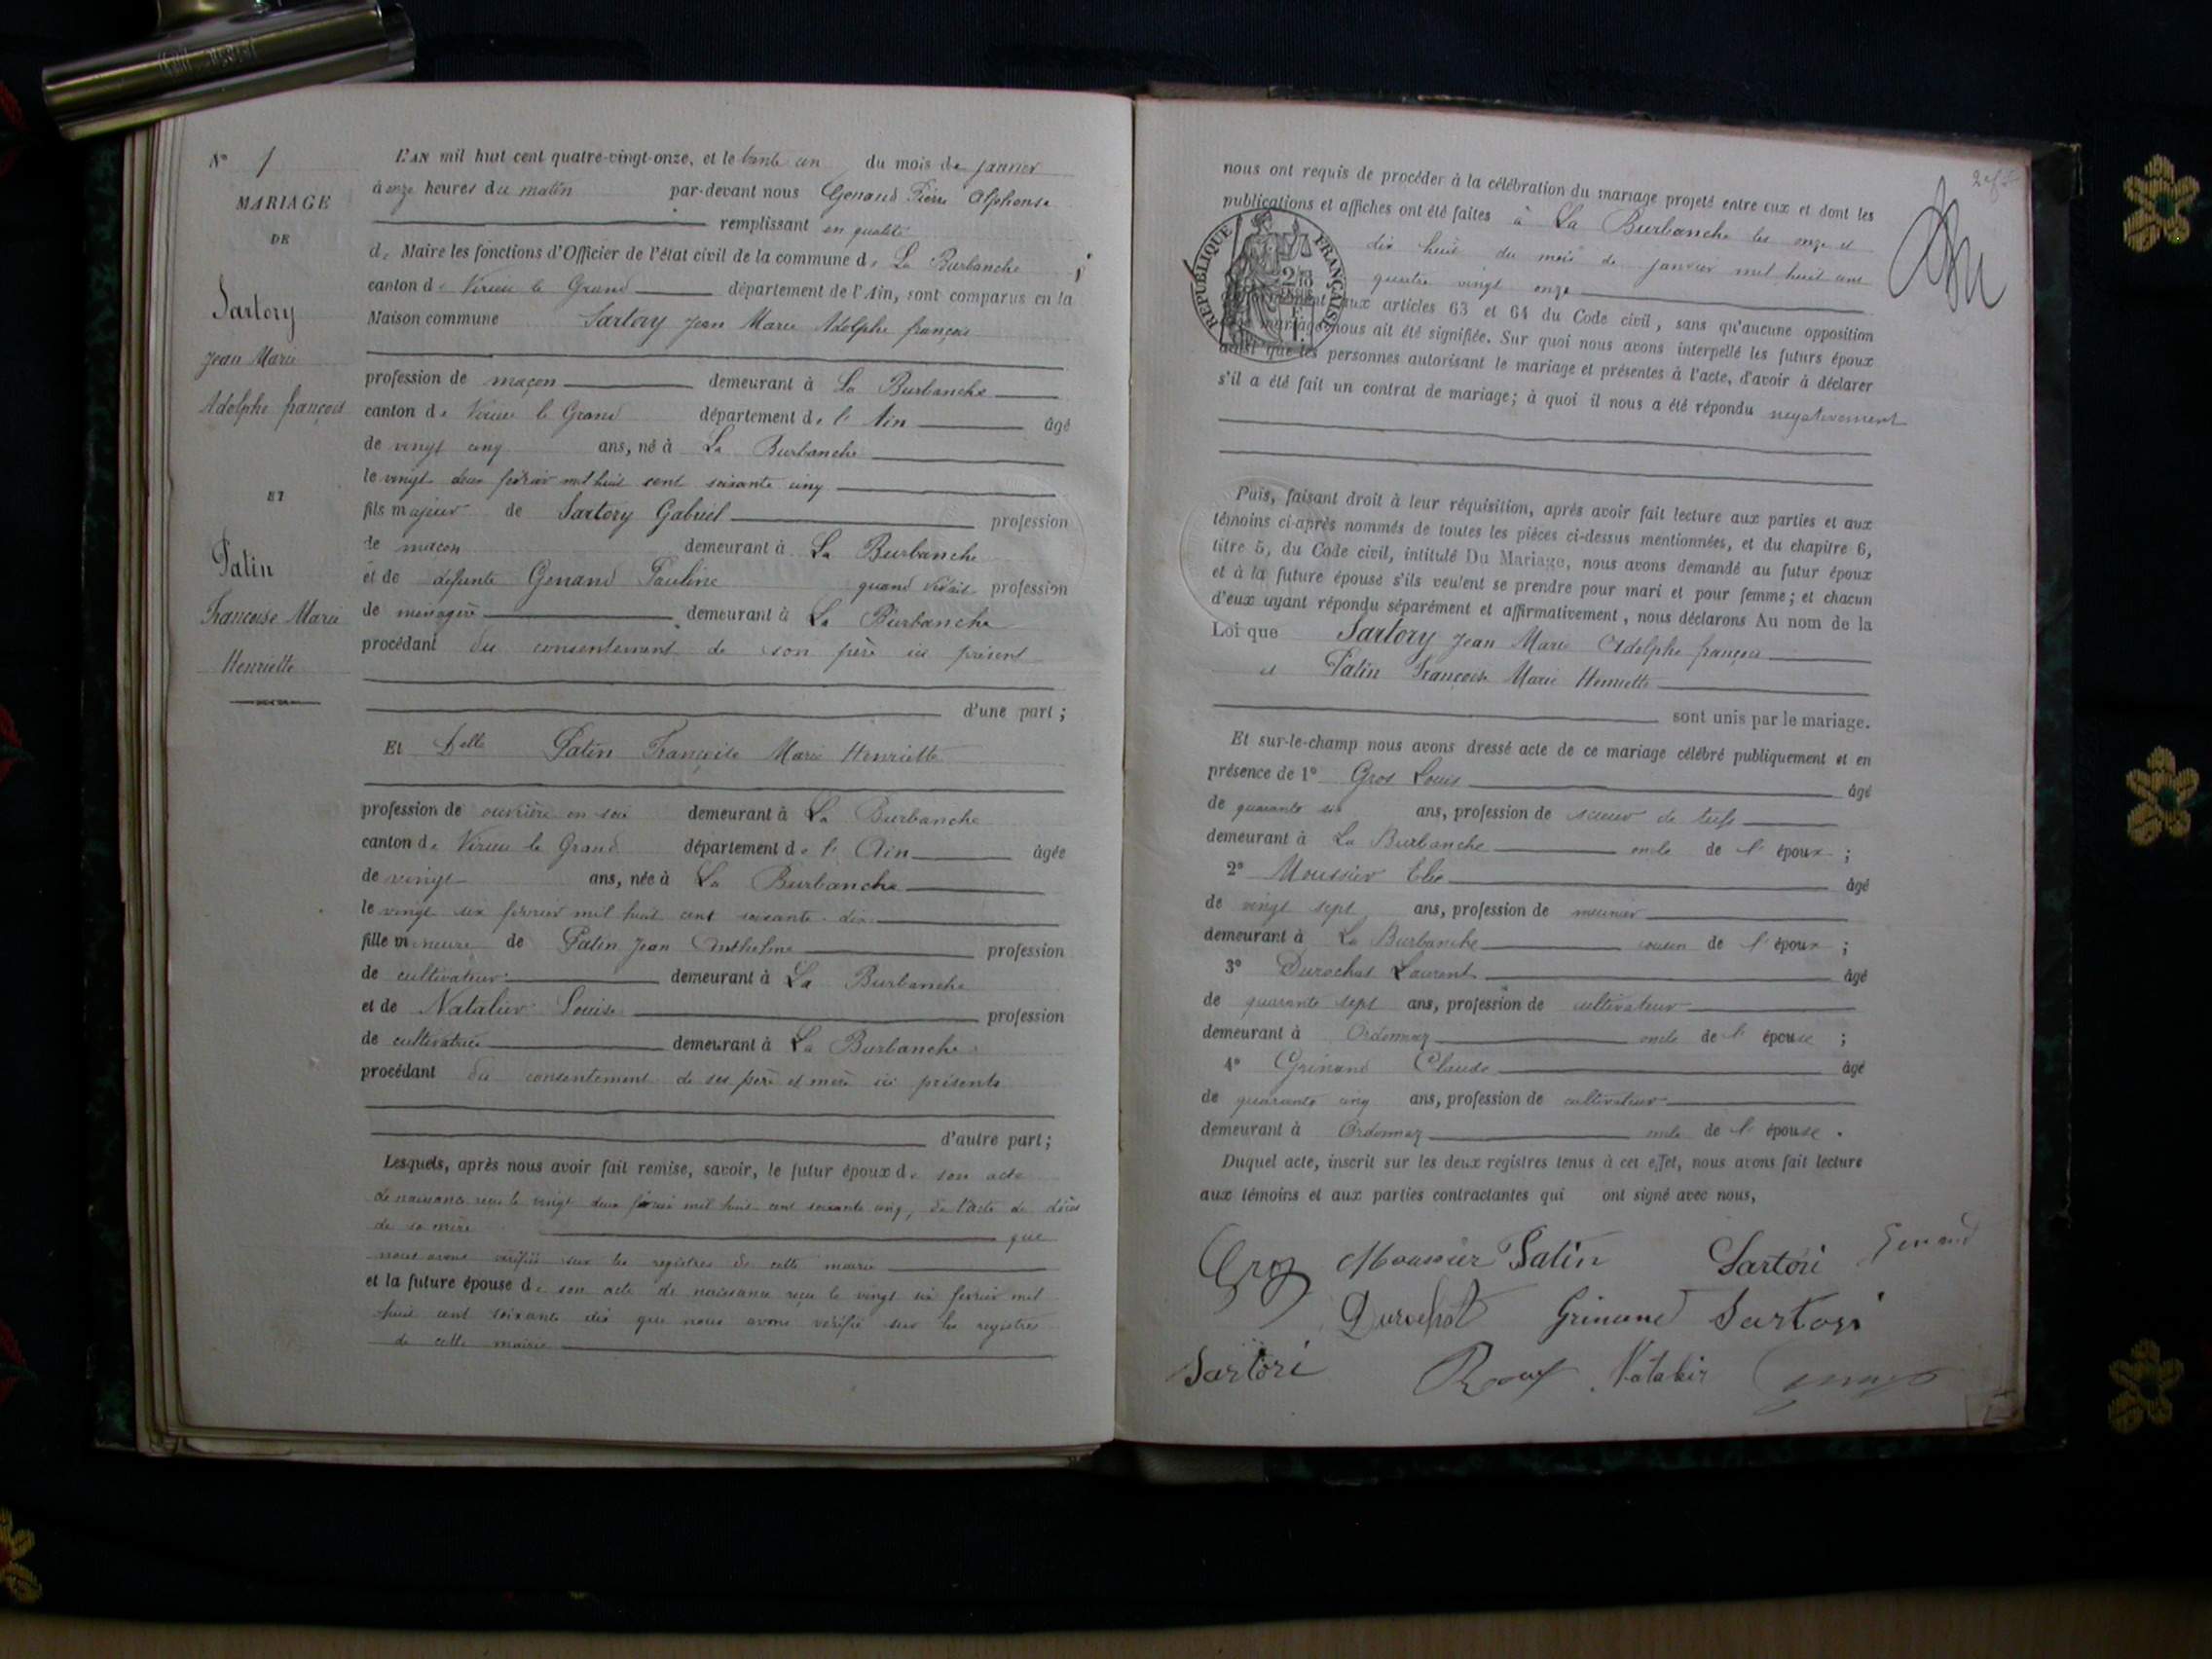 N° 1
MARIAGE
DE
Sartory
Jean Marie
Adolphe françois
ET
Patin
Françoise Marie
Henriette
L'AN mil huit cent quatre-vingt-onze, et le trente un du mois de janvier
à onze heures du matin par-devant nous Genand Pierre Alphonse
remplissant en qualité
de Maire les fonctions d'Officier de l'état civil de la commune de La Burbanche
canton de Virieu le Grand département de l'Ain, sont comparus en la
Maison commune Sartory Jean Marie Adolphe françois
profession de maçon demeurant à La Burbanche
canton de Virieu le Grand département de l'Ain âgé
de vingt cinq ans, né à La Burbanche
le vingt deux février mil huit cent soixante cinq
fils majeur de Sartory Gabriel profession
de macon demeurant à La Burbanche
et de défunte Genand Pauline quand vivait profession
de ménagère demeurant à La Burbanche
procédant du consentement de son père ici présent
d'une part ;
Et Delle Patin Françoise Marie Henriette
profession de ouvrière en soie demeurant à La Burbanche
canton de Virieu le Grand département de l'Ain âgée
de vingt ans, née à La Burbanche
le vingt six février mil huit cent soixante dix
fille mineure de Patin Jean Anthelme profession
de cultivateur demeurant à La Burbanche
et de Natalier Louise profession
de cultivatrice demeurant à La Burbanche
procédant du consentement de ses père et mère ici présents
d'autre part ;
Lesquels, après nous avoir fait remise, savoir, le futur époux de son acte
de naissance reçu le vingt deux février mil huit cent soixante cinq, de l'acte de décès
de sa mère que
nous avons vérifiés sur les registres de cette mairie
et la future épouse de son acte de naissance reçu le vingt six février mil
huit cent soixante dix que nous avons vérifié sur les registres
de cette mairie
nous ont requis de procéder à la célébration du mariage projeté entre eux et dont les
publications et affiches ont été faites à La Burbanche les onze et
dix huit du mois de janvier mil huit cent
quatre vingt onze
RÉPUBLIQUE FRANÇAISE
aux articles 63 et 64 du Code civil, sans qu'aucune opposition
mariage nous ait été signifiée. Sur quoi nous avons interpellé les futurs époux
ainsi que les personnes autorisant le mariage et présentes à l'acte, d'avoir à déclarer
s'il a été fait un contrat de mariage ; à quoi il nous a été répondu négativement
Puis, faisant droit à leur réquisition, après avoir fait lecture aux parties et aux
témoins ci-après nommés de toutes les pièces ci-dessus mentionnées, et du chapitre 6,
titre 5, du Code civil, intitulé Du Mariage, nous avons demandé au futur époux
et à la future épouse s'ils veulent se prendre pour mari et pour femme ; et chacun
d'eux ayant répondu séparément et affirmativement, nous déclarons Au nom de la
Loi que Sartory Jean Marie Adolphe françois
et Patin Françoise Marie Henriette
sont unis par le mariage.
Et sur-le-champ nous avons dressé acte de ce mariage célébré publiquement et en
présence de 1° Gros Louis âgé
de quarante six ans, profession de scieur de tufs
demeurant à La Burbanche oncle de l'époux ;
2° Moussier Elie âgé
de vingt sept ans, profession de meunier
demeurant à La Burbanche cousin de l'époux ;
3° Durochat Laurent âgé
de quarante sept ans, profession de cultivateur
demeurant à Ordonnaz oncle de l'épouse ;
4° Grinand Claude âgé
de quarante cinq ans, profession de cultivateur
demeurant à Ordonnaz oncle de l'épouse .
Duquel acte, inscrit sur les deux registres tenus à cet effet, nous avons fait lecture
aux témoins et aux parties contractantes qui ont signé avec nous,
Gros Moussier Patin Sartori Genand
Durochat Grinand Sartori
Sartori Roux Natalier